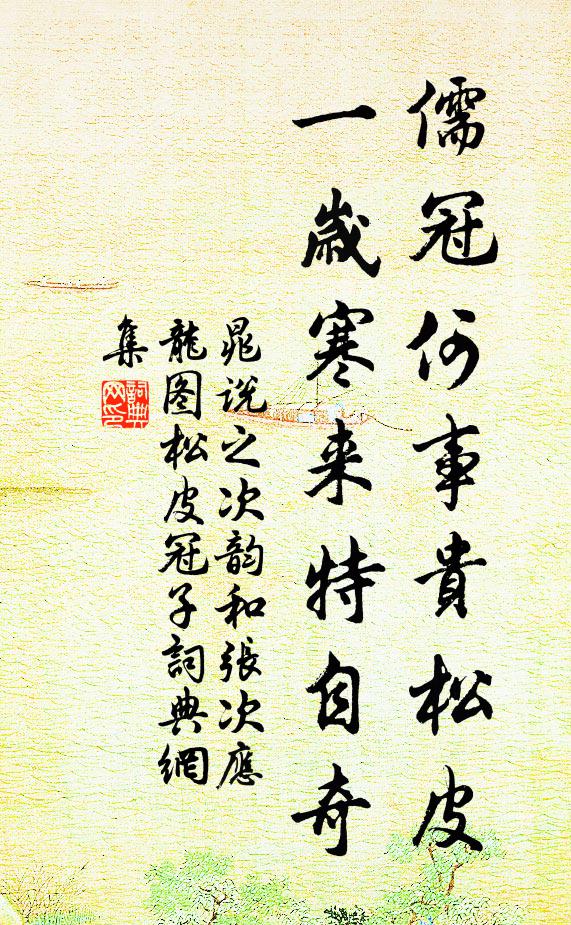 儒冠何事貴松皮
一歲寒来特自奇
晁说之次韵和張次應
龍图松皮冠子詞典網
集
詞典
网印